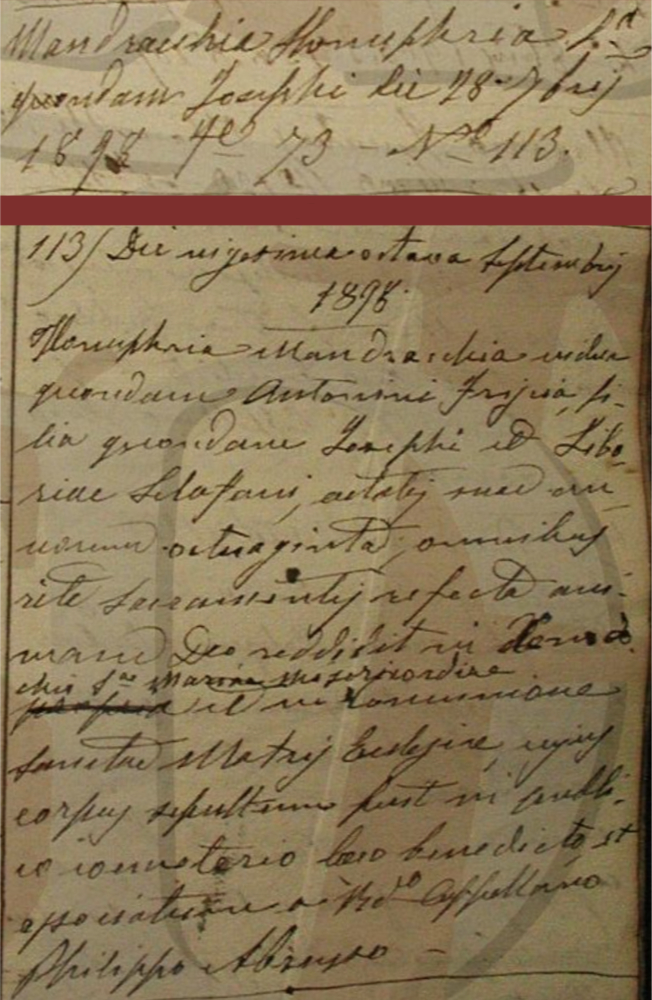 Mandracchia Honuphria f.a
quondam Josephi die 28 7brij
1898 73 N.o 113.
113/ Die vigesima octava Septembrij
1898
Honuphria Mandracchia vidua
quondam Antonini Frisia, fi-
lia quondam Josephi et Libo-
riae Sclafani, aetatij suae an-
norum octuaginta, omnibus
rite Sacramentij refecta ani-
mam Deo reddidit in
S.ae Mariae Misericordiae
et in comunione
Sanctae Matrij Eclesiae, cujus
corpus sepultum fuit in publi-
co coemeterio loco benedicto, et
associatum a Rdo Cappellano
Philippo Abruzzo